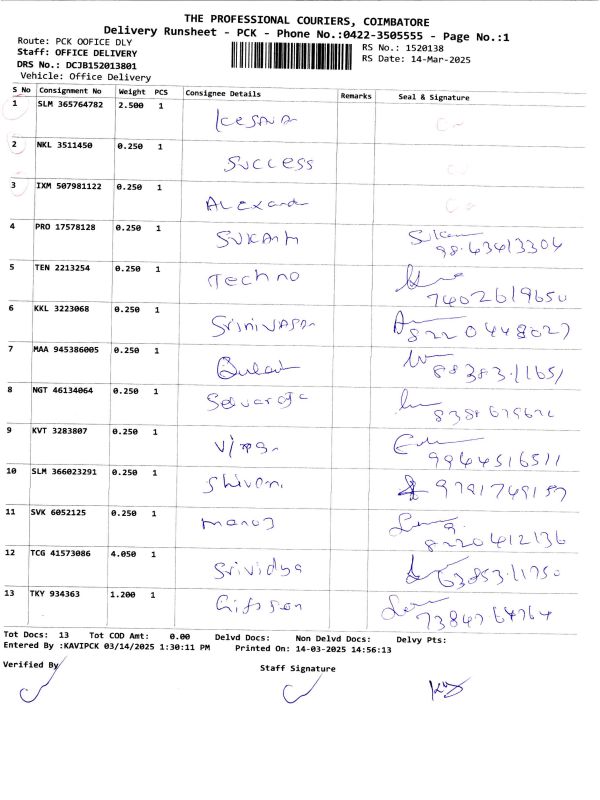 THE PROFESSIONAL COURIERS, COIMBATORE
Delivery Runsheet - PCK - Phone No.:0422-3505555 - Page No.:1
Route: PCK OOFICE DLY
Staff: OFFICE DELIVERY
DRS No.: DCJB152013801
Vehicle: Office Delivery
RS No.: 1520138
RS Date: 14-Mar-2025
S No Consignment No Weight PCS Consignee Details Remarks Seal & Signature
1 SLM 365764782 2.500 1
2 NKL 3511450 0.250 1 Success
3 IXM 507981122 0.250 1 Alexander
4 PRO 17578128 0.250 1 Sukanth 9843413304
5 TEN 2213254 0.250 1 Techno 7402619650
6 KKL 3223068 0.250 1 Srinivasan 8220448027
7 MAA 945386005 0.250 1
8 NGT 46134064 0.250 1
9 KVT 3283807 0.250 1 9944516511
10 SLM 366023291 0.250 1 Shivani 9791749157
11 SVK 6052125 0.250 1 Manoj 8220412136
12 TCG 41573086 4.050 1 Srividya
13 TKY 934363 1.200 1
Tot Docs: 13 Tot COD Amt: 0.00 Delvd Docs: Non Delvd Docs: Delvy Pts:
Entered By :KAVIPCK 03/14/2025 1:30:11 PM Printed On: 14-03-2025 14:56:13
Verified By Staff Signature